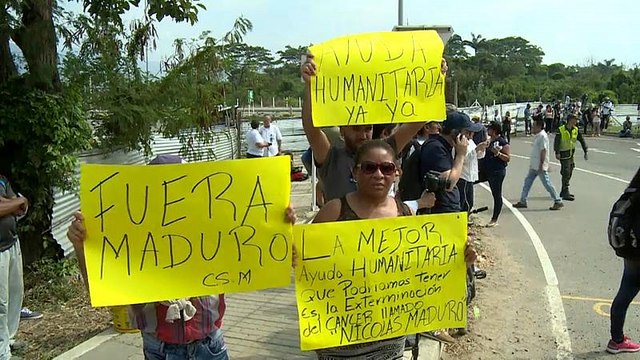 AYUDA
HUMANITARIA
YA YA
FUERA
MADURO
CS.M
LA MEJOR
Ayuda HUMANITARIA
Que Podriamos Tener
Es la Exterminación
del CANCER llAMADO
"NICOLAS MADURO